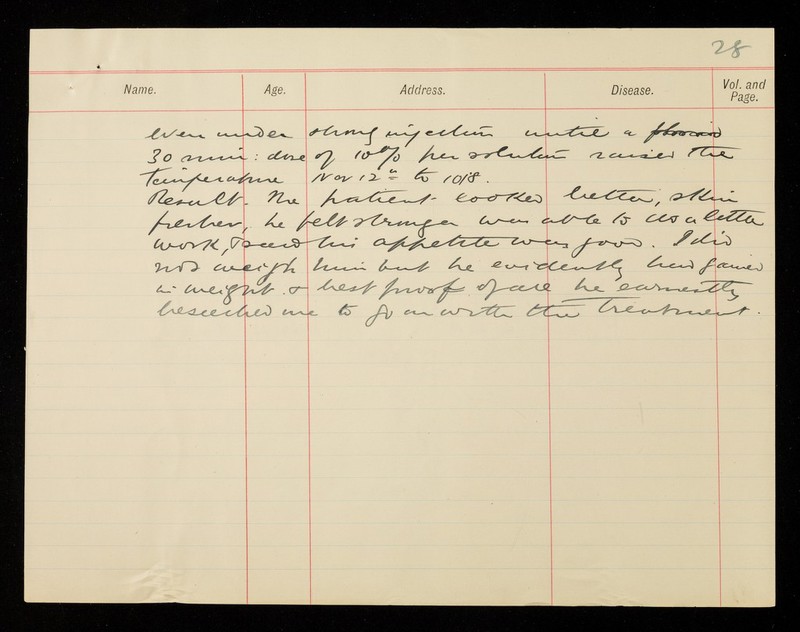 28
Name. Age. Address. Disease. Vol. and Page.
even under strong injection until a
30 min: dose of 10% per solution raised the
temperature Nov 12th to 101.8.
Result. The patient looked better, skin
fresher, he felt stronger was able to do a little
work, & said his appetite was good. I did
not weigh him but he evidently had gained
in weight & best proof of all he earnestly
beseeched me to go on with the treatment.